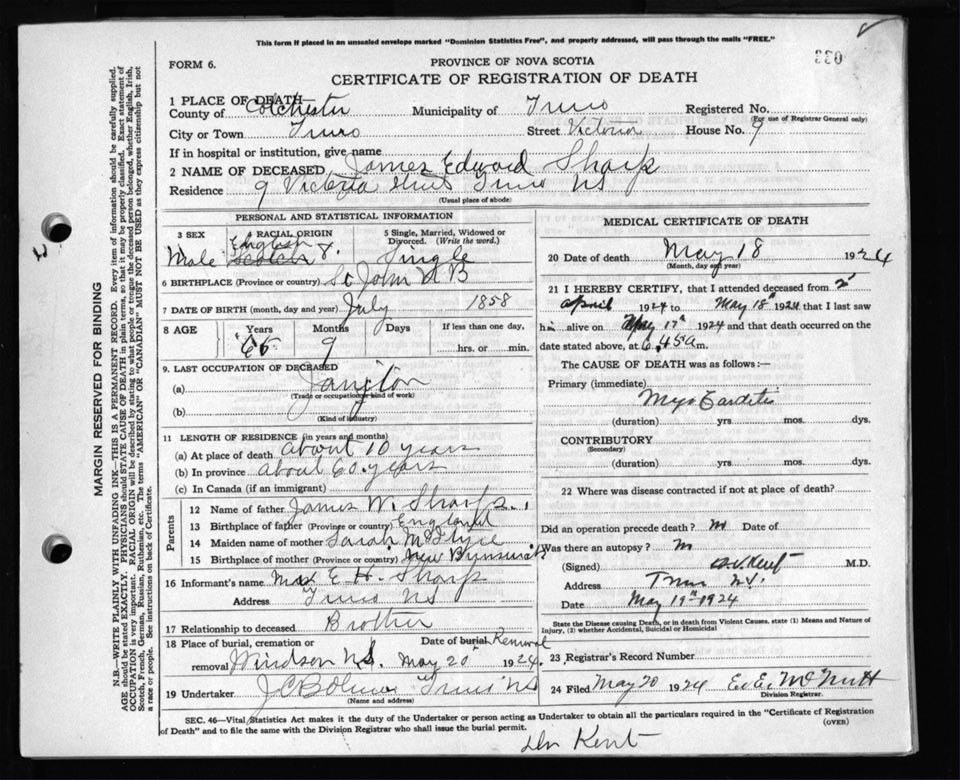 This form if placed in an unsealed envelope marked "Dominion Statistics Free", and properly addressed, will pass through the mails "FREE."
330
FORM 6.
PROVINCE OF NOVA SCOTIA
CERTIFICATE OF REGISTRATION OF DEATH
1 PLACE OF DEATH
County of Colchester Municipality of Truro Registered No.
(For use of Registrar General only)
City or Town Truro Street Victoria House No. 9
If in hospital or institution, give name
2 NAME OF DECEASED James Edward Sharp
Residence 9 Victoria Street Truro NS
(Usual place of abode)
PERSONAL AND STATISTICAL INFORMATION
3 SEX Male
RACIAL ORIGIN English & Scotch
5 Single, Married, Widowed or Divorced. (Write the word.) Single
6 BIRTHPLACE (Province or country) St John N B
7 DATE OF BIRTH (month, day and year) July 1858
8 AGE Years Months Days If less than one day,
65 9 hrs. or min.
9. LAST OCCUPATION OF DECEASED
(a) Janitor
(Trade or occupation or kind of work)
(b)
(Kind of industry)
11 LENGTH OF RESIDENCE (in years and months)
(a) At place of death about 10 years
(b) In province about 60 years
(c) In Canada (if an immigrant)
Parents
12 Name of father James W. Sharp
13 Birthplace of father (Province or country) England
14 Maiden name of mother Sarah
15 Birthplace of mother (Province or country) New Brunswick
16 Informant's name E H. Sharp
Address Truro NS
17 Relationship to deceased Brother
18 Place of burial, cremation or removal Windsor NS. Date of burial Removal May 20 1924.
19 Undertaker Truro NS
(Name and address)
MEDICAL CERTIFICATE OF DEATH
20 Date of death May 18 1924
(Month, day and year)
21 I HEREBY CERTIFY, that I attended deceased from 2
April 1924 to May 18th 1924 that I last saw
him alive on May 17th 1924 and that death occurred on
date stated above, at 6.45 a m.
The CAUSE OF DEATH was as follows:—
Primary (immediate)
Myo Carditis
(duration) yrs mos. dys.
CONTRIBUTORY
(Secondary)
(duration) yrs. mos. dys.
22 Where was disease contracted if not at place of death?
Did an operation precede death? no Date of
Was there an autopsy? no
(Signed) Kent M.D.
Address Truro N.S.
Date May 19th 1924
State the Disease causing Death, or in death from Violent Causes, state (1) Means and Nature of Injury, (2) whether Accidental, Suicidal or Homicidal
23 Registrar's Record Number
24 Filed May 20 1924 E. E. McNutt
Division Registrar.
SEC. 46—Vital Statistics Act makes it the duty of the Undertaker or person acting as Undertaker to obtain all the particulars required in the "Certificate of Registration
of Death" and to file the same with the Division Registrar who shall issue the burial permit. (OVER)
Dr Kent
MARGIN RESERVED FOR BINDING
N.B.—WRITE PLAINLY WITH UNFADING INK—THIS IS A PERMANENT RECORD. Every item of information should be carefully supplied.
AGE should be stated EXACTLY. PHYSICIANS should STATE CAUSE OF DEATH in plain terms, so that it may be properly classified. Exact statement of
OCCUPATION is very important. RACIAL ORIGIN will be described by stating to what people or tongue the deceased person belonged, whether English, Irish,
Scotch, French, German, Russian, Ruthenian, etc. The terms "AMERICAN" OR "CANADIAN" MUST NOT BE USED as they express citizenship but not
a race or people. See instructions on back of Certificate.